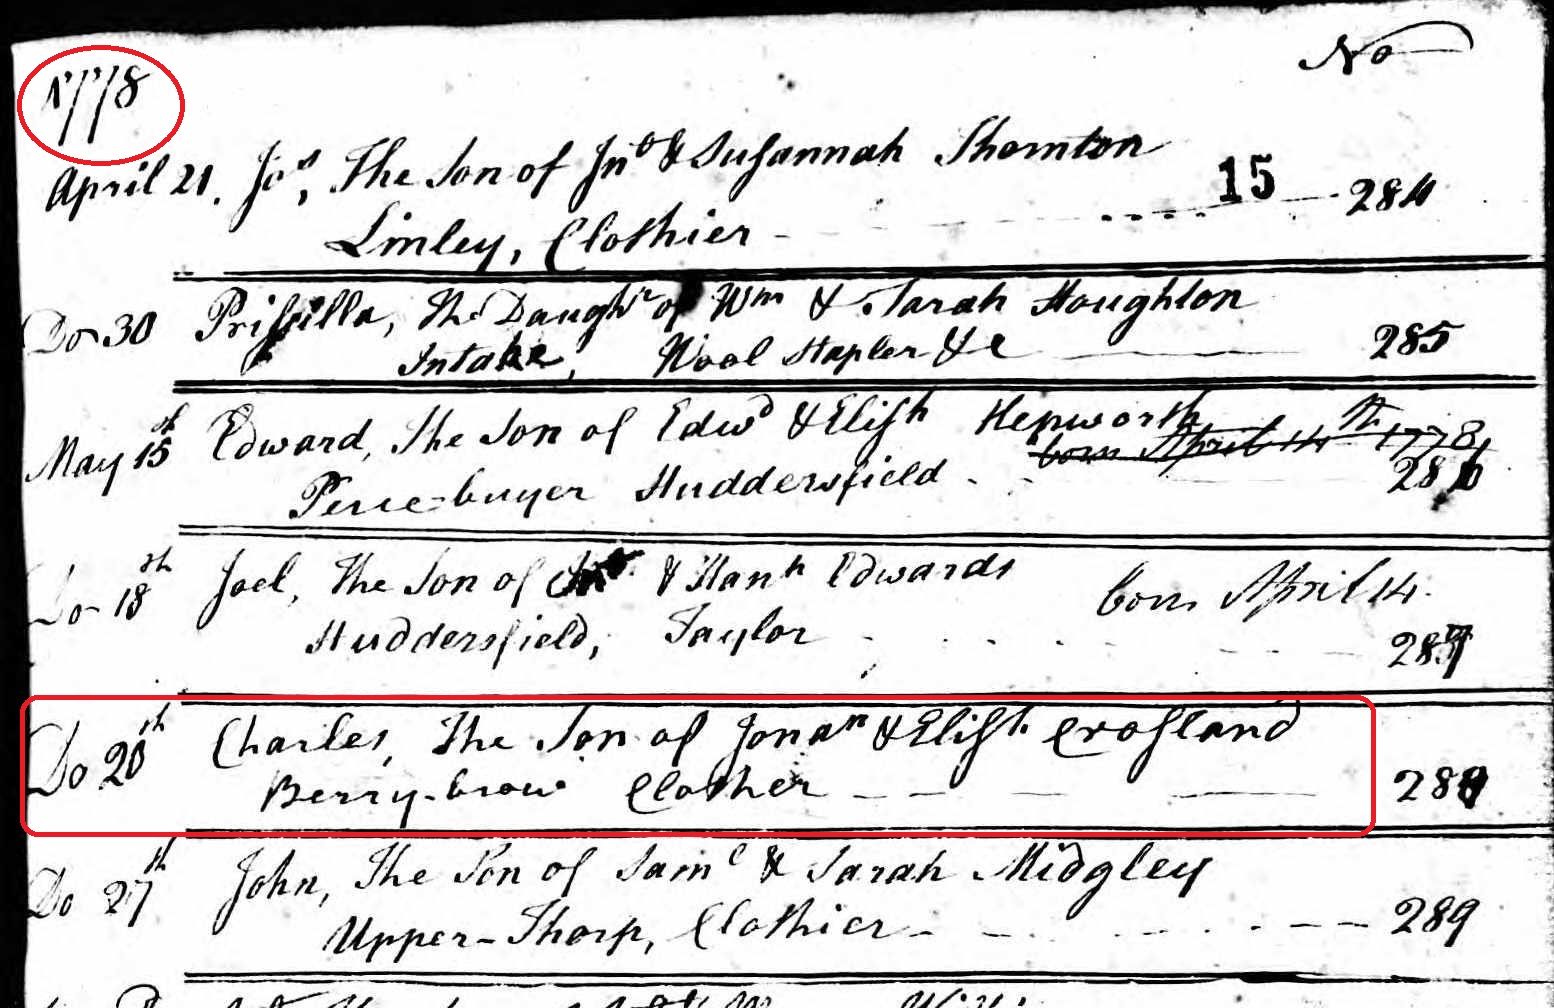 1778
No
April 21. Jos, The Son of Jno & Susannah Thornton
15
284
Linley, Clothier
Do 30 Prissilla, The Daughr of Wm & Sarah Houghton
Intake, Wool Stapler &c 285
May 15th Edward, The Son of Edwd & Elisth Hepworth
born April 14th 1778
Peice-buyer Huddersfield 286
Do 18th Joel, The Son of & Hanh Edwards born April 14.
Huddersfield, Taylor 287
Do 20th Charles, The Son of Jonan & Elisth Crosland
Berry-brow Clother 288
Do 27th John, The Son of Saml & Sarah Midgley
Upper-Thorp, Clothier 289